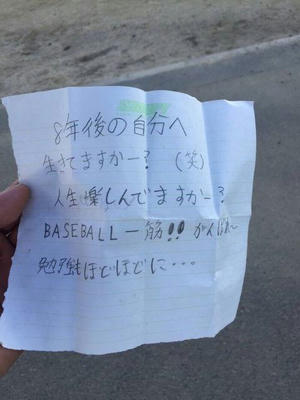 8年後の自分へ
生きてますかー? (笑)
人生楽しんでますかー?
BASEBALL一筋!! がんばれ〜
勉強ほどほどに・・・